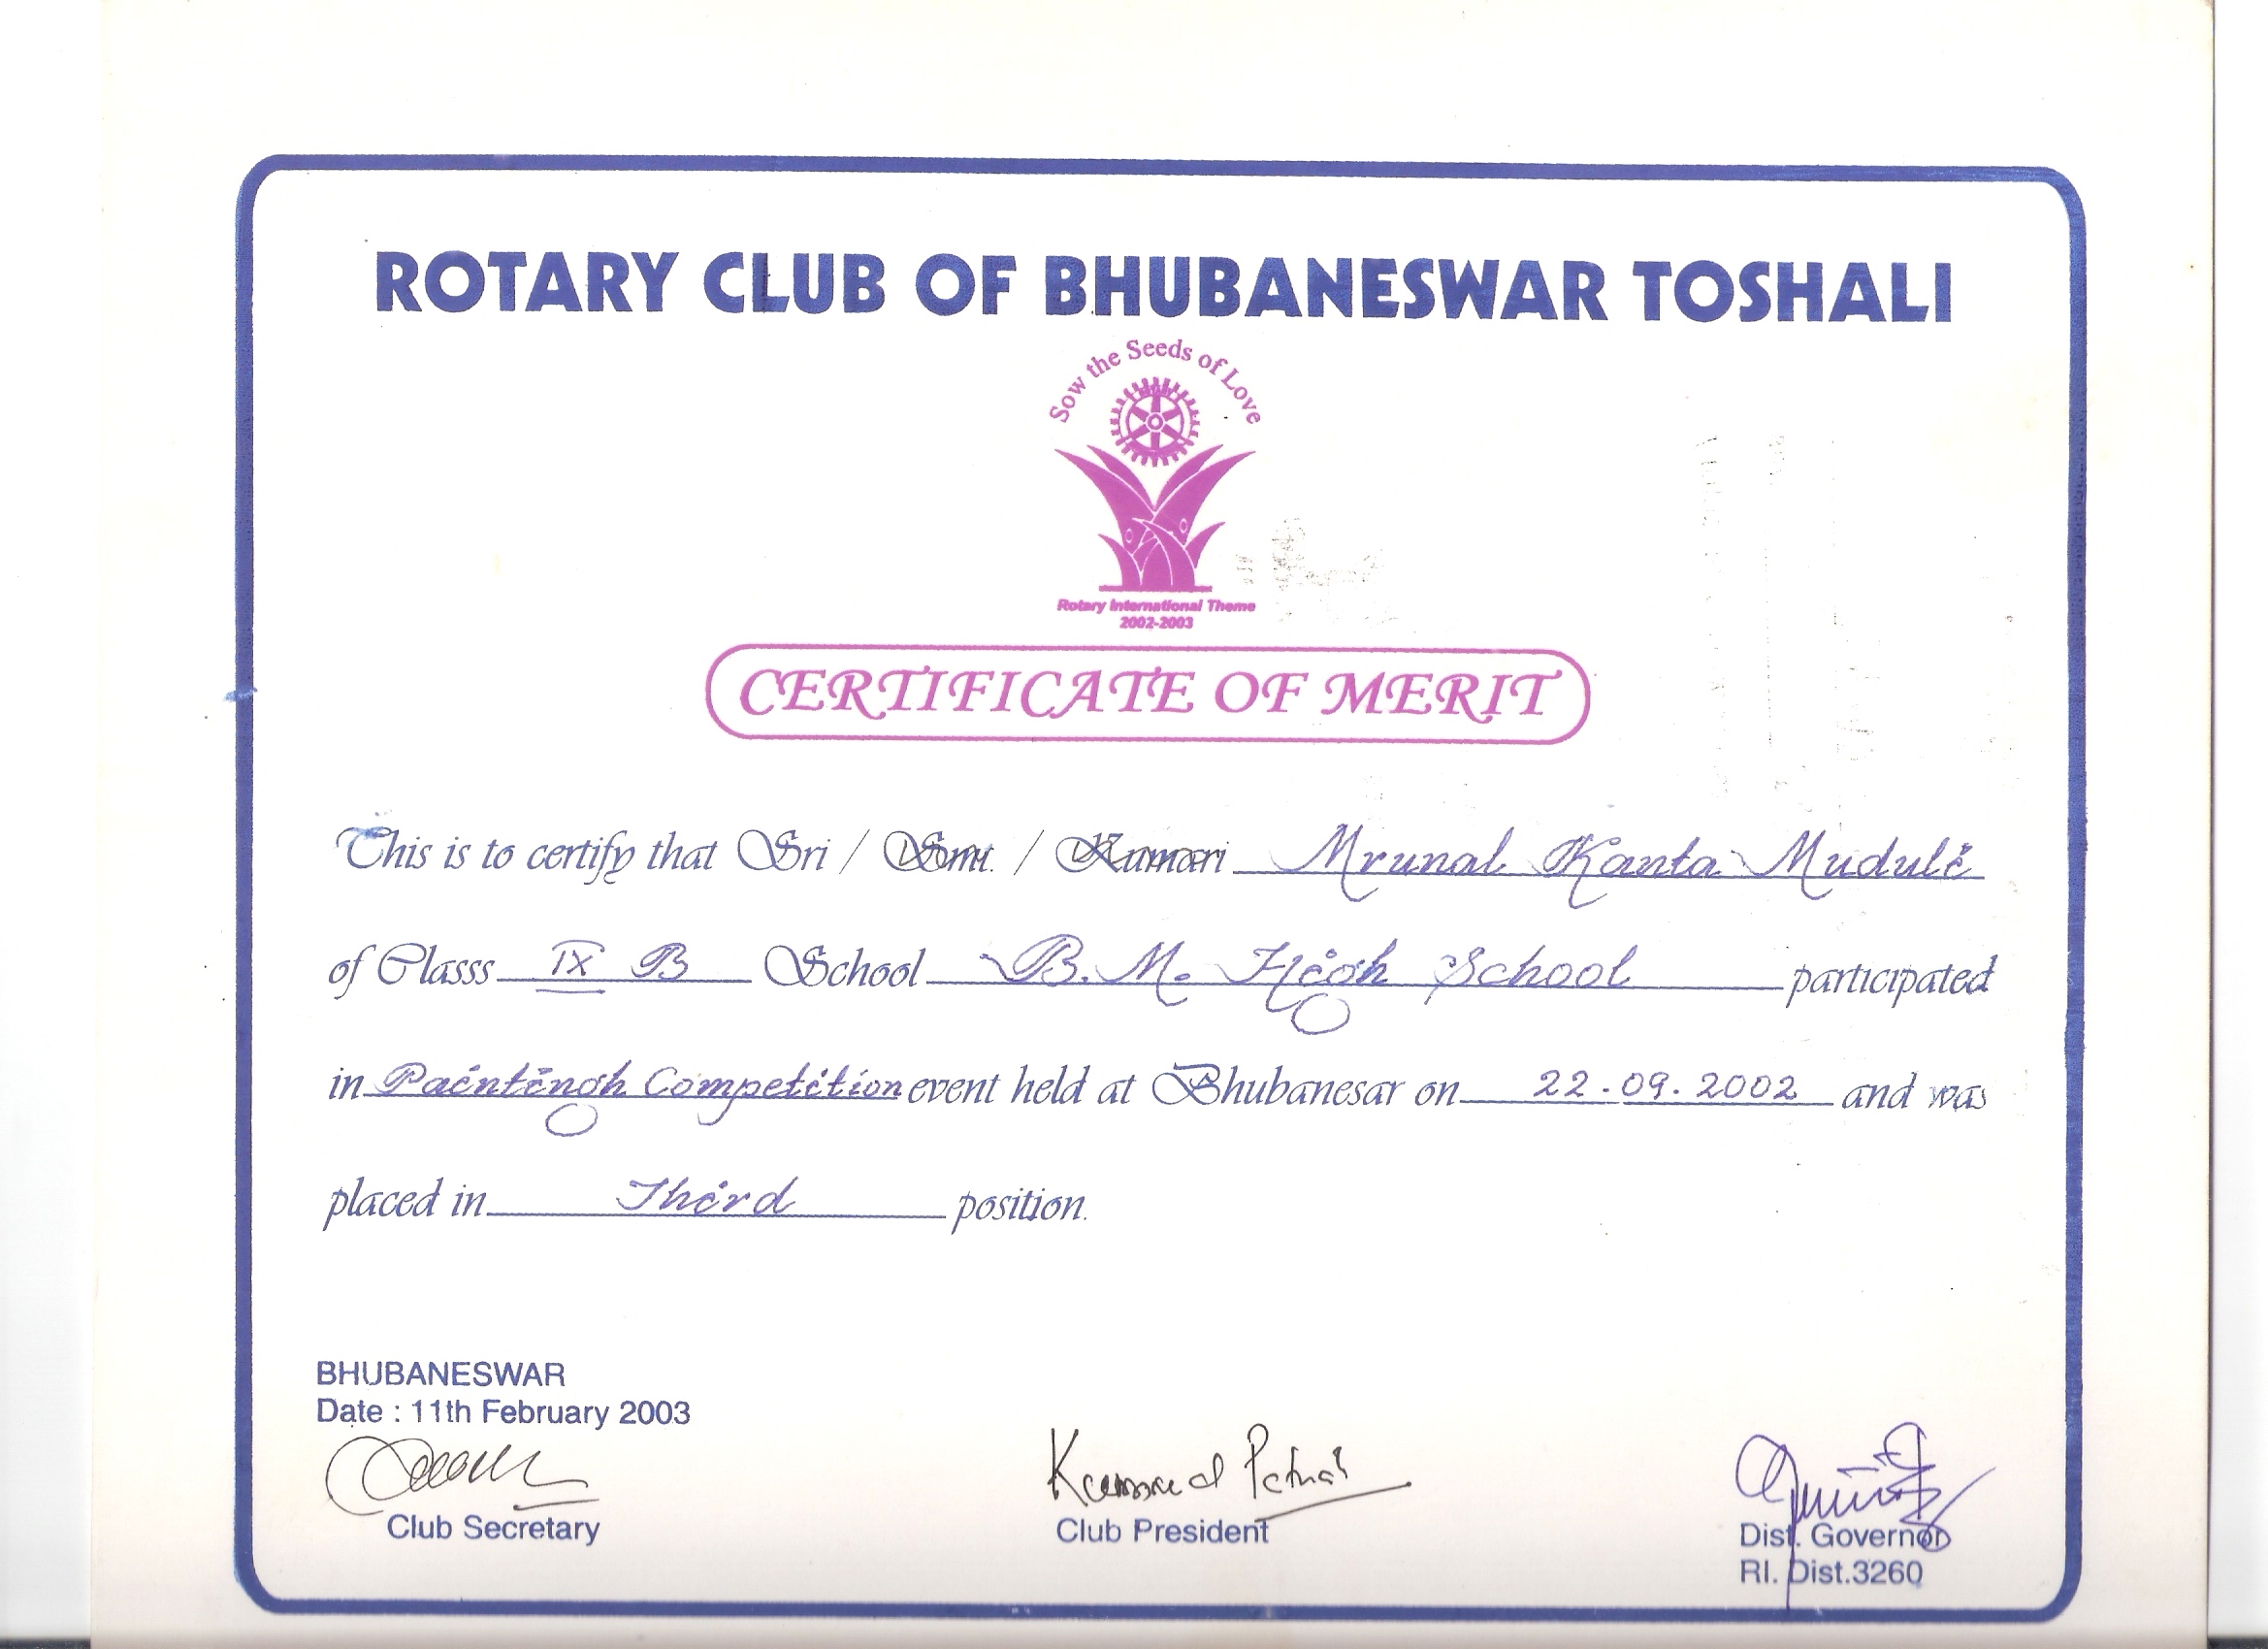 ROTARY CLUB OF BHUBANESWAR TOSHALI
Sow the Seeds of Love
Rotary International Theme
2002-2003
CERTIFICATE OF MERIT
This is to certify that Sri / Smt. / Kumari Mrunal Kanta Muduli
of Classs IX B School B.M. High School participated
in Painting Competition event held at Bhubanesar on 22.09.2002 and was
placed in Third position.
BHUBANESWAR
Date : 11th February 2003
Club Secretary
Club President
Dist. Governor
RI. Dist.3260